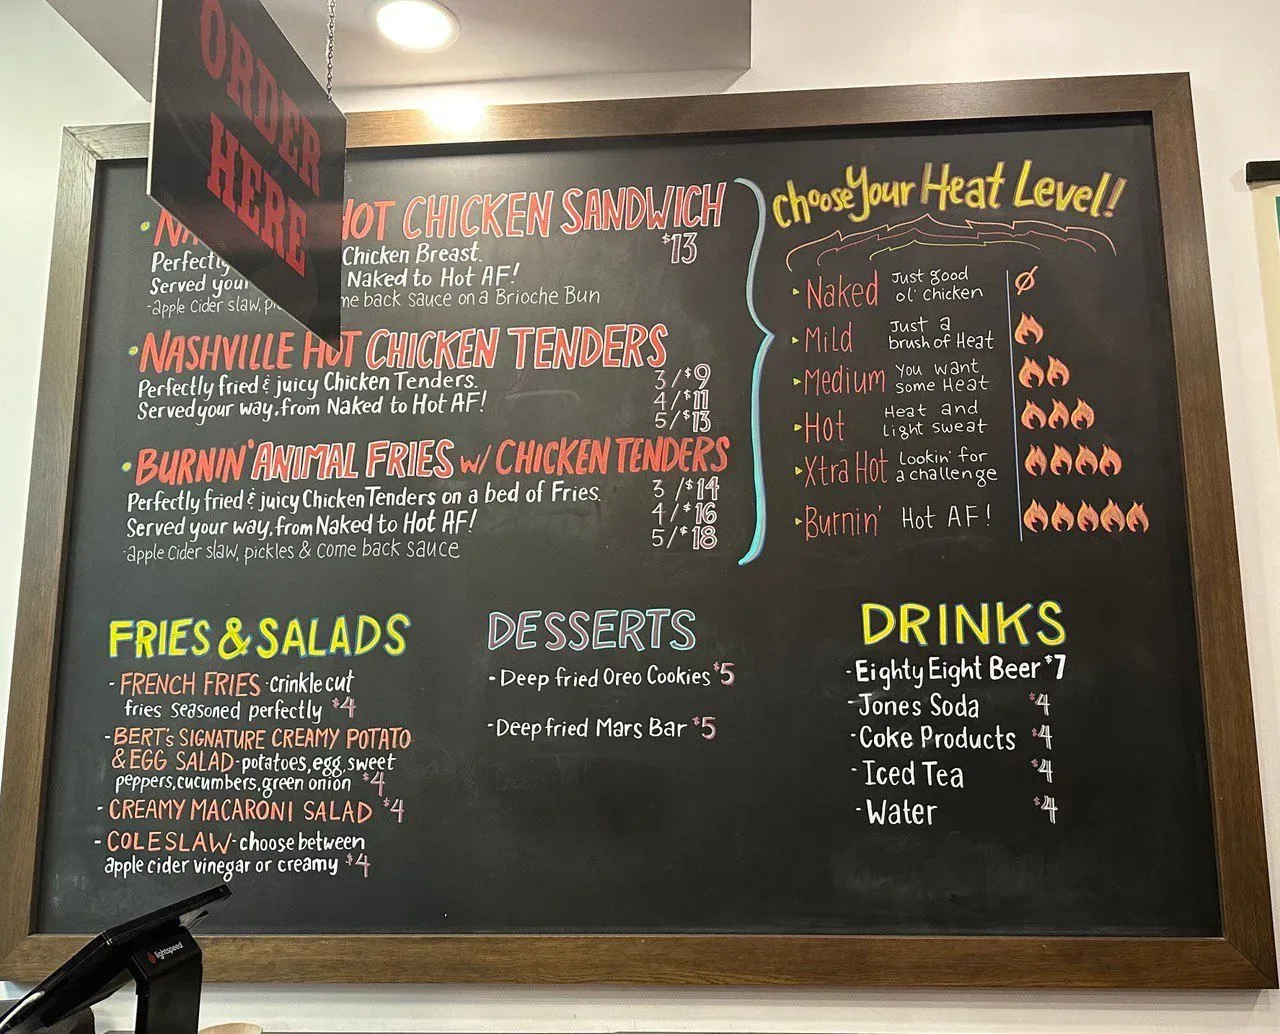 ORDER
HERE
HOT CHICKEN SANDWICH
Chicken Breast. $13
Served Naked to Hot AF!
-apple Cider slaw, me back sauce on a Brioche Bun
•NASHVILLE HOT CHICKEN TENDERS
Perfectly fried & juicy Chicken Tenders. 3/$9
Served your way, from Naked to Hot AF! 4/$11
5/$13
•BURNIN' ANIMAL FRIES w/ CHICKEN TENDERS
Perfectly fried & juicy Chicken Tenders on a bed of Fries. 3/$14
Served your way, from Naked to Hot AF! 4/$16
-apple Cider slaw, pickles & come back sauce 5/$18
Choose Your Heat Level!
Naked Just good
ol' Chicken
Mild Just a
brush of Heat
Medium You want
some Heat
Hot Heat and
Light sweat
Xtra Hot Lookin' for
a challenge
Burnin' Hot AF!
FRIES & SALADS
- FRENCH FRIES - crinkle cut
fries seasoned perfectly $4
- BERT's SIGNATURE CREAMY POTATO
& EGG SALAD - potatoes, egg, sweet
peppers, cucumbers, green onion $4
- CREAMY MACARONI SALAD $4
- COLESLAW - choose between
apple cider vinegar or creamy $4
DESSERTS
- Deep fried Oreo Cookies $5
- Deep fried Mars Bar $5
DRINKS
- Eighty Eight Beer $7
- Jones Soda $4
- Coke Products $4
- Iced Tea $4
- Water $4
lightspeed